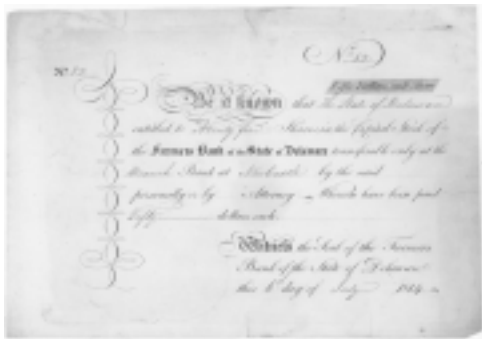 No. 52
No. 52
Fifty Dollars each Share
Be it known that the State of Delaware
entitled to Twenty five Shares in the Capital Stock of
the Farmers Bank of the State of Delaware transferable only at the
Branch Bank at Newcastle by the said
personally or by Attorney on Which have been paid
Fifty dollars each.
Witness the Seal of the Farmers
Bank of the State of Delaware
this 6 day of July 18